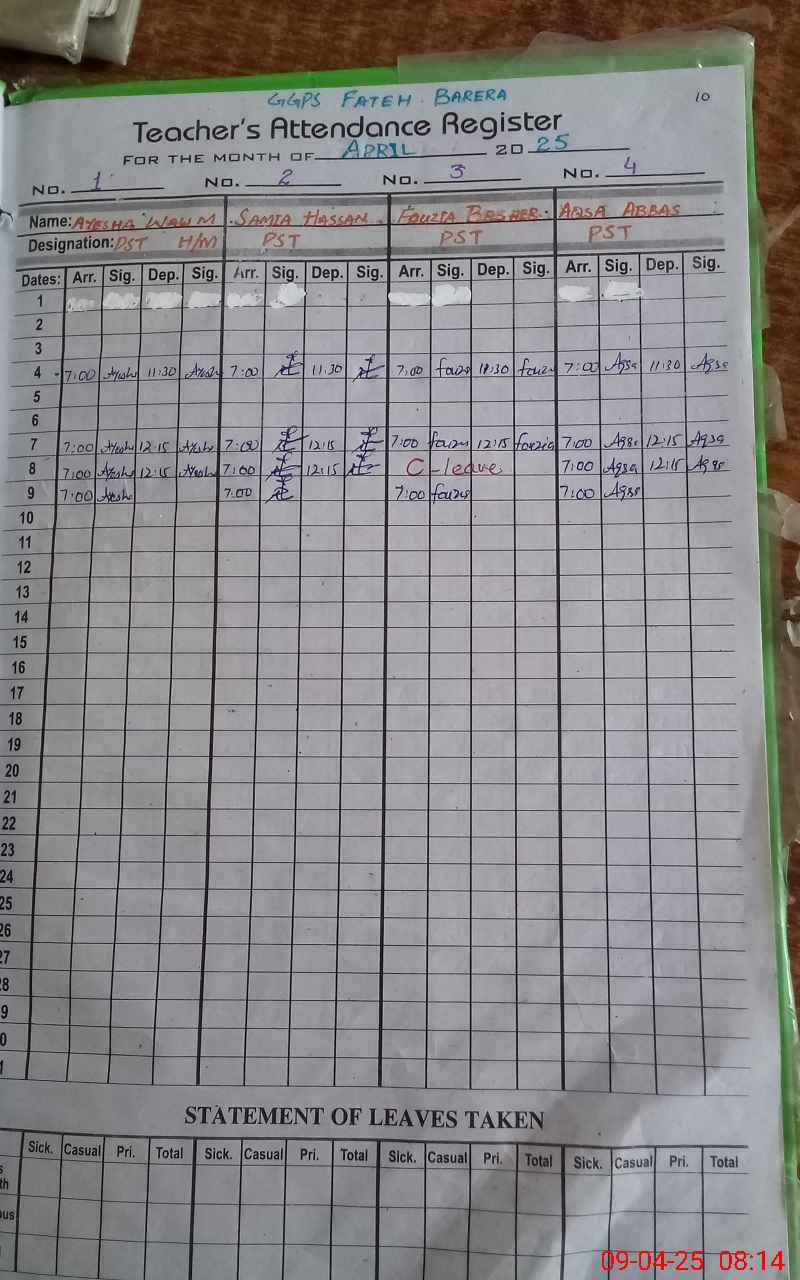 GGPS FATEH. BARERA
10
Teacher's Attendance Register
FOR THE MONTH OF APRIL 20 25
No. 1 No. 2 No. 3 No. 4
Name: AYESHA SAMIA HASSAN. FOUZIA BASHEER. AQSA ABBAS
Designation: PST H/M PST PST PST
Dates: Arr. Sig. Dep. Sig. Arr. Sig. Dep. Sig. Arr. Sig. Dep. Sig. Arr. Sig. Dep. Sig.
1
2
3
4 7:00 11:30 7:00 11:30 7:00 7:00 Aqsa 11:30 Aqsa
5
6
7 7:00 12:15 7:00 12:15 7:00 12:15 fouzia 7:00 Aqsa 12:15 Aqsa
8 7:00 12:15 7:00 12:15 C-leave 7:00 Aqsa 12:15 Aqsa
9 7:00 7:00 7:00 7:00 Aqsa
10
11
12
13
14
15
16
17
18
19
20
21
22
23
24
25
26
27
8
9
0
1
STATEMENT OF LEAVES TAKEN
Sick. Casual Pri. Total Sick. Casual Pri. Total Sick. Casual Pri. Total Sick. Casual Pri. Total
s
th
ous
09-04-25 08:14